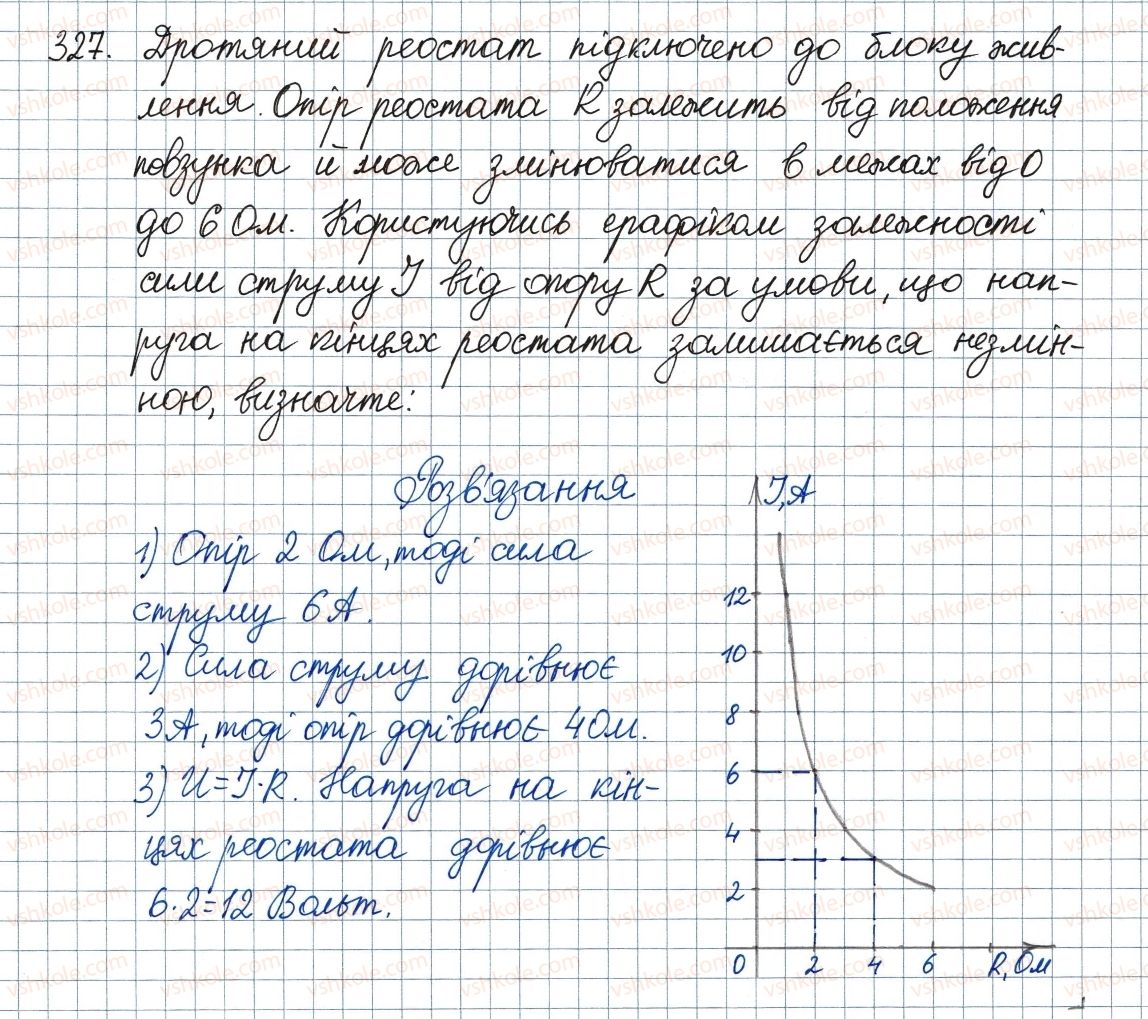 327. Дротяний реостат підключено до блоку жив-
лення. Опір реостата R залежить від положення
повзунка й може змінюватися в межах від 0
до 6 Ом. Користуючись графіком залежності
сили струму I від опору R за умови, що нап-
руга на кінцях реостата залишається незмін-
ною, визначте:
Розв'язання
1) Опір 2 Ом, тоді сила
струму 6 А.
2) Сила струму дорівнює
3А, тоді опір дорівнює 4 Ом.
3) U=I·R. Напруга на кін-
цях реостата дорівнює
6·2=12 Вольт.
I, А
12
10
8
6
4
2
0 2 4 6 R, Ом
vshkole.com